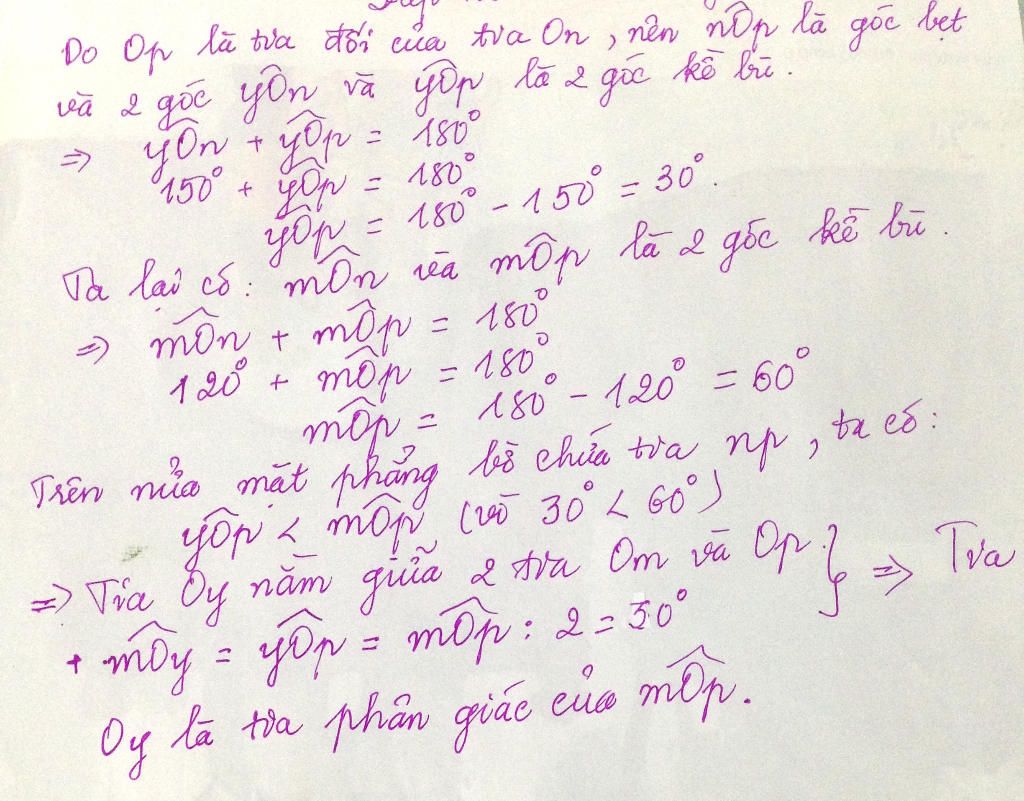 Do Op là tia đối của tia On, nên nÔp là góc bẹt
và 2 góc yÔn và yÔp là 2 góc kề bù.
=> yÔn + yÔp = 180°
150° + yÔp = 180°
yÔp = 180° - 150° = 30°.
Ta lại có: mÔn và mÔp là 2 góc kề bù.
=> mÔn + mÔp = 180°
120° + mÔp = 180°
mÔp = 180° - 120° = 60°
Trên nửa mặt phẳng bờ chứa tia np, ta có:
yÔp < mÔp (vì 30° < 60°)
=> Tia Oy nằm giữa 2 tia Om và Op. } => Tia
+ mÔy = yÔp = mÔp : 2 = 30°
Oy là tia phân giác của mÔp.